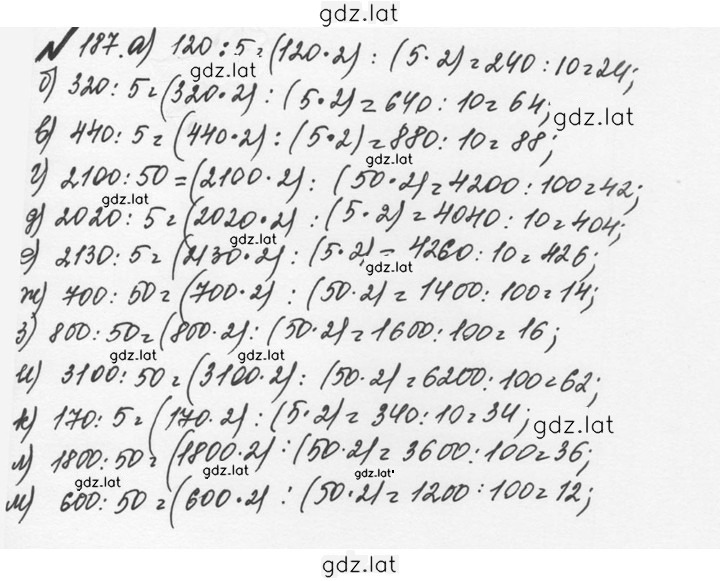 gdz.lat
№ 187. а) 120 : 5 = (120 · 2) : (5 · 2) = 240 : 10 = 24;
gdz.lat
б) 320 : 5 = (320 · 2) : (5 · 2) = 640 : 10 = 64;
gdz.lat
в) 440 : 5 = (440 · 2) : (5 · 2) = 880 : 10 = 88;
gdz.lat
г) 2100 : 50 = (2100 · 2) : (50 · 2) = 4200 : 100 = 42;
gdz.lat
д) 2020 : 5 = (2020 · 2) : (5 · 2) = 4040 : 10 = 404;
gdz.lat
е) 2130 : 5 = (2130 · 2) : (5 · 2) = 4260 : 10 = 426;
gdz.lat
ж) 700 : 50 = (700 · 2) : (50 · 2) = 1400 : 100 = 14;
з) 800 : 50 = (800 · 2) : (50 · 2) = 1600 : 100 = 16;
gdz.lat gdz.lat
и) 3100 : 50 = (3100 · 2) : (50 · 2) = 6200 : 100 = 62;
к) 170 : 5 = (170 · 2) : (5 · 2) = 340 : 10 = 34;
gdz.lat
л) 1800 : 50 = (1800 · 2) : (50 · 2) = 3600 : 100 = 36;
gdz.lat gdz.lat gdz.lat
м) 600 : 50 = (600 · 2) : (50 · 2) = 1200 : 100 = 12;
gdz.lat